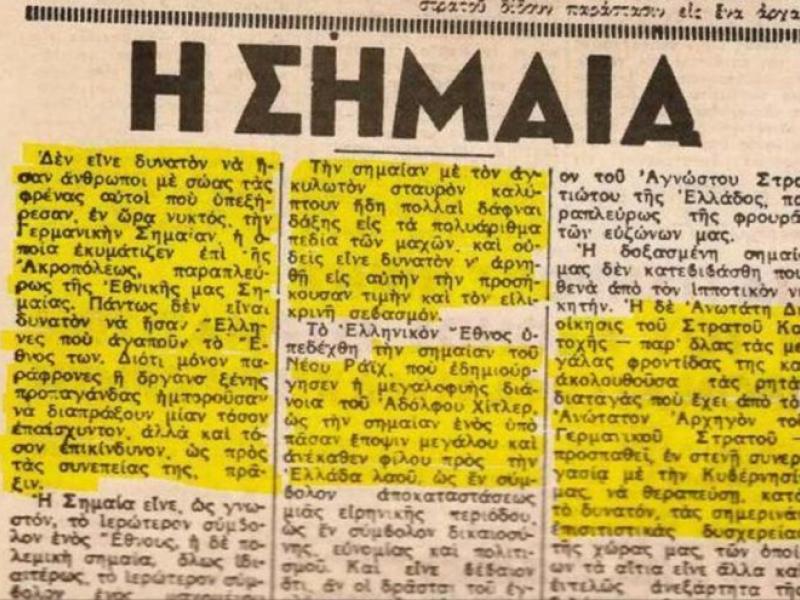 στρατοῦ δίδουν παράστασιν εἰς ἕνα ἀργα
Η ΣΗΜΑΙΑ
Δὲν εἶνε δυνατὸν νὰ ἦ-
σαν ἄνθρωποι μὲ σώας τὰς
φρένας αὐτοὶ ποὺ ὑπεξή-
ρεσαν, ἐν ὥρᾳ νυκτός, τὴν
Γερμανικὴν Σημαίαν, ἡ ὁ-
ποία ἐκυμάτιζεν ἐπὶ τῆς
Ἀκροπόλεως, παραπλεύ-
ρως τῆς Ἐθνικῆς μας Ση-
μαίας. Πάντως δὲν εἶναι
δυνατὸν νὰ ἦσαν Ἕλλη-
νες ποὺ ἀγαποῦν τὸ Ἔ-
θνος των. Διότι μόνον πα-
ράφρονες ἢ ὄργανα ξένης
προπαγάνδας ἠμποροῦσαν
νὰ διαπράξουν μίαν τόσον
ἐπαίσχυντον, ἀλλὰ καὶ τό-
σον ἐπικίνδυνον, ὡς πρὸς
τὰς συνεπείας της, πρᾶ-
ξιν.
Ἡ Σημαία εἶνε, ὡς γνω-
στόν, τὸ ἱερώτερον σύμβο-
λον ἑνὸς Ἔθνους, ἡ δὲ πο-
λεμικὴ σημαία, ὅλως ἰδι-
αιτέρως, τὸ ἱερώτερον σύμ-
βολον ἑνὸς
Τὴν σημαίαν μὲ τὸν ἀγ-
κυλωτὸν σταυρὸν καλύ-
πτουν ἤδη πολλαὶ δάφναι
δόξης εἰς τὰ πολυάριθμα
πεδία τῶν μαχῶν, καὶ οὐ-
δεὶς εἶνε δυνατὸν ν' ἀρνη-
θῇ εἰς αὐτὴν τὴν προσή-
κουσαν τιμὴν καὶ τὸν εἰλι-
κρινῆ σεβασμόν.
Τὸ Ἑλληνικὸν Ἔθνος ὑ-
πεδέχθη τὴν σημαίαν τοῦ
Νέου Ράϊχ, ποὺ ἐδημιούρ-
γησεν ἡ μεγαλοφυὴς διά-
νοια τοῦ Ἀδόλφου Χίτλερ,
ὡς τὴν σημαίαν ἑνὸς ὑπὸ
πᾶσαν ἔποψιν μεγάλου καὶ
ἀνέκαθεν φίλου πρὸς τὴν
Ἑλλάδα λαοῦ, ὡς ἓν σύμ-
βολον ἀποκαταστάσεως
μιᾶς εἰρηνικῆς περιόδου,
ὡς ἓν σύμβολον δικαιοσύ-
νης, εὐνομίας καὶ πολιτι-
σμοῦ. Καὶ εἶνε βέβαιον
ὅτι, ἂν οἱ δρᾶσται τοῦ ἐγ-
ον τοῦ Ἀγνώστου Στρα
τιώτου τῆς Ἑλλάδος, πα
ραπλεύρως τῆς φρουρᾶ
τῶν εὐζώνων μας.
Ἡ δοξασμένη σημαί
μας δὲν κατεβιβάσθη που
θενὰ ἀπὸ τὸν ἱπποτικὸν νι
κητήν. Ἡ δὲ Ἀνωτάτη Δι
οίκησις τοῦ Στρατοῦ Κα
τοχῆς — παρ' ὅλας τὰς με
γάλας φροντίδας της κα
ἀκολουθοῦσα τὰς ρητὰ
διαταγὰς ποὺ ἔχει ἀπὸ τὸ
Ἀνώτατον Ἀρχηγὸν το
Γερμανικοῦ Στρατοῦ —
προσπαθεῖ, ἐν στενῇ συνερ
γασίᾳ μὲ τὴν Κυβέρνησί
μας, νὰ θεραπεύσῃ, κατὰ
τὸ δυνατόν, τὰς σημερινὰ
ἐπισιτιστικὰς δυσχερεία
τῆς χώρας μας, τῶν ὁποί
ων τὰ αἴτια εἶνε ἄλλα κα
ἐντελῶς ἀνεξάρτητα τῆς